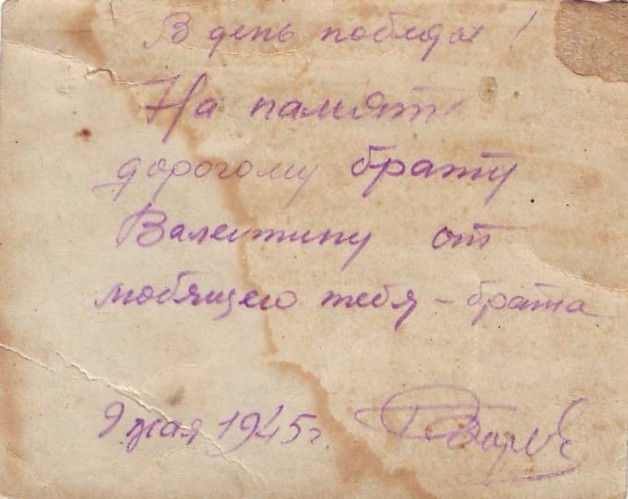 В день победы!
На памят
дорогому брату
Валентину от
любящего тебя - брата
9 мая 1945 г.